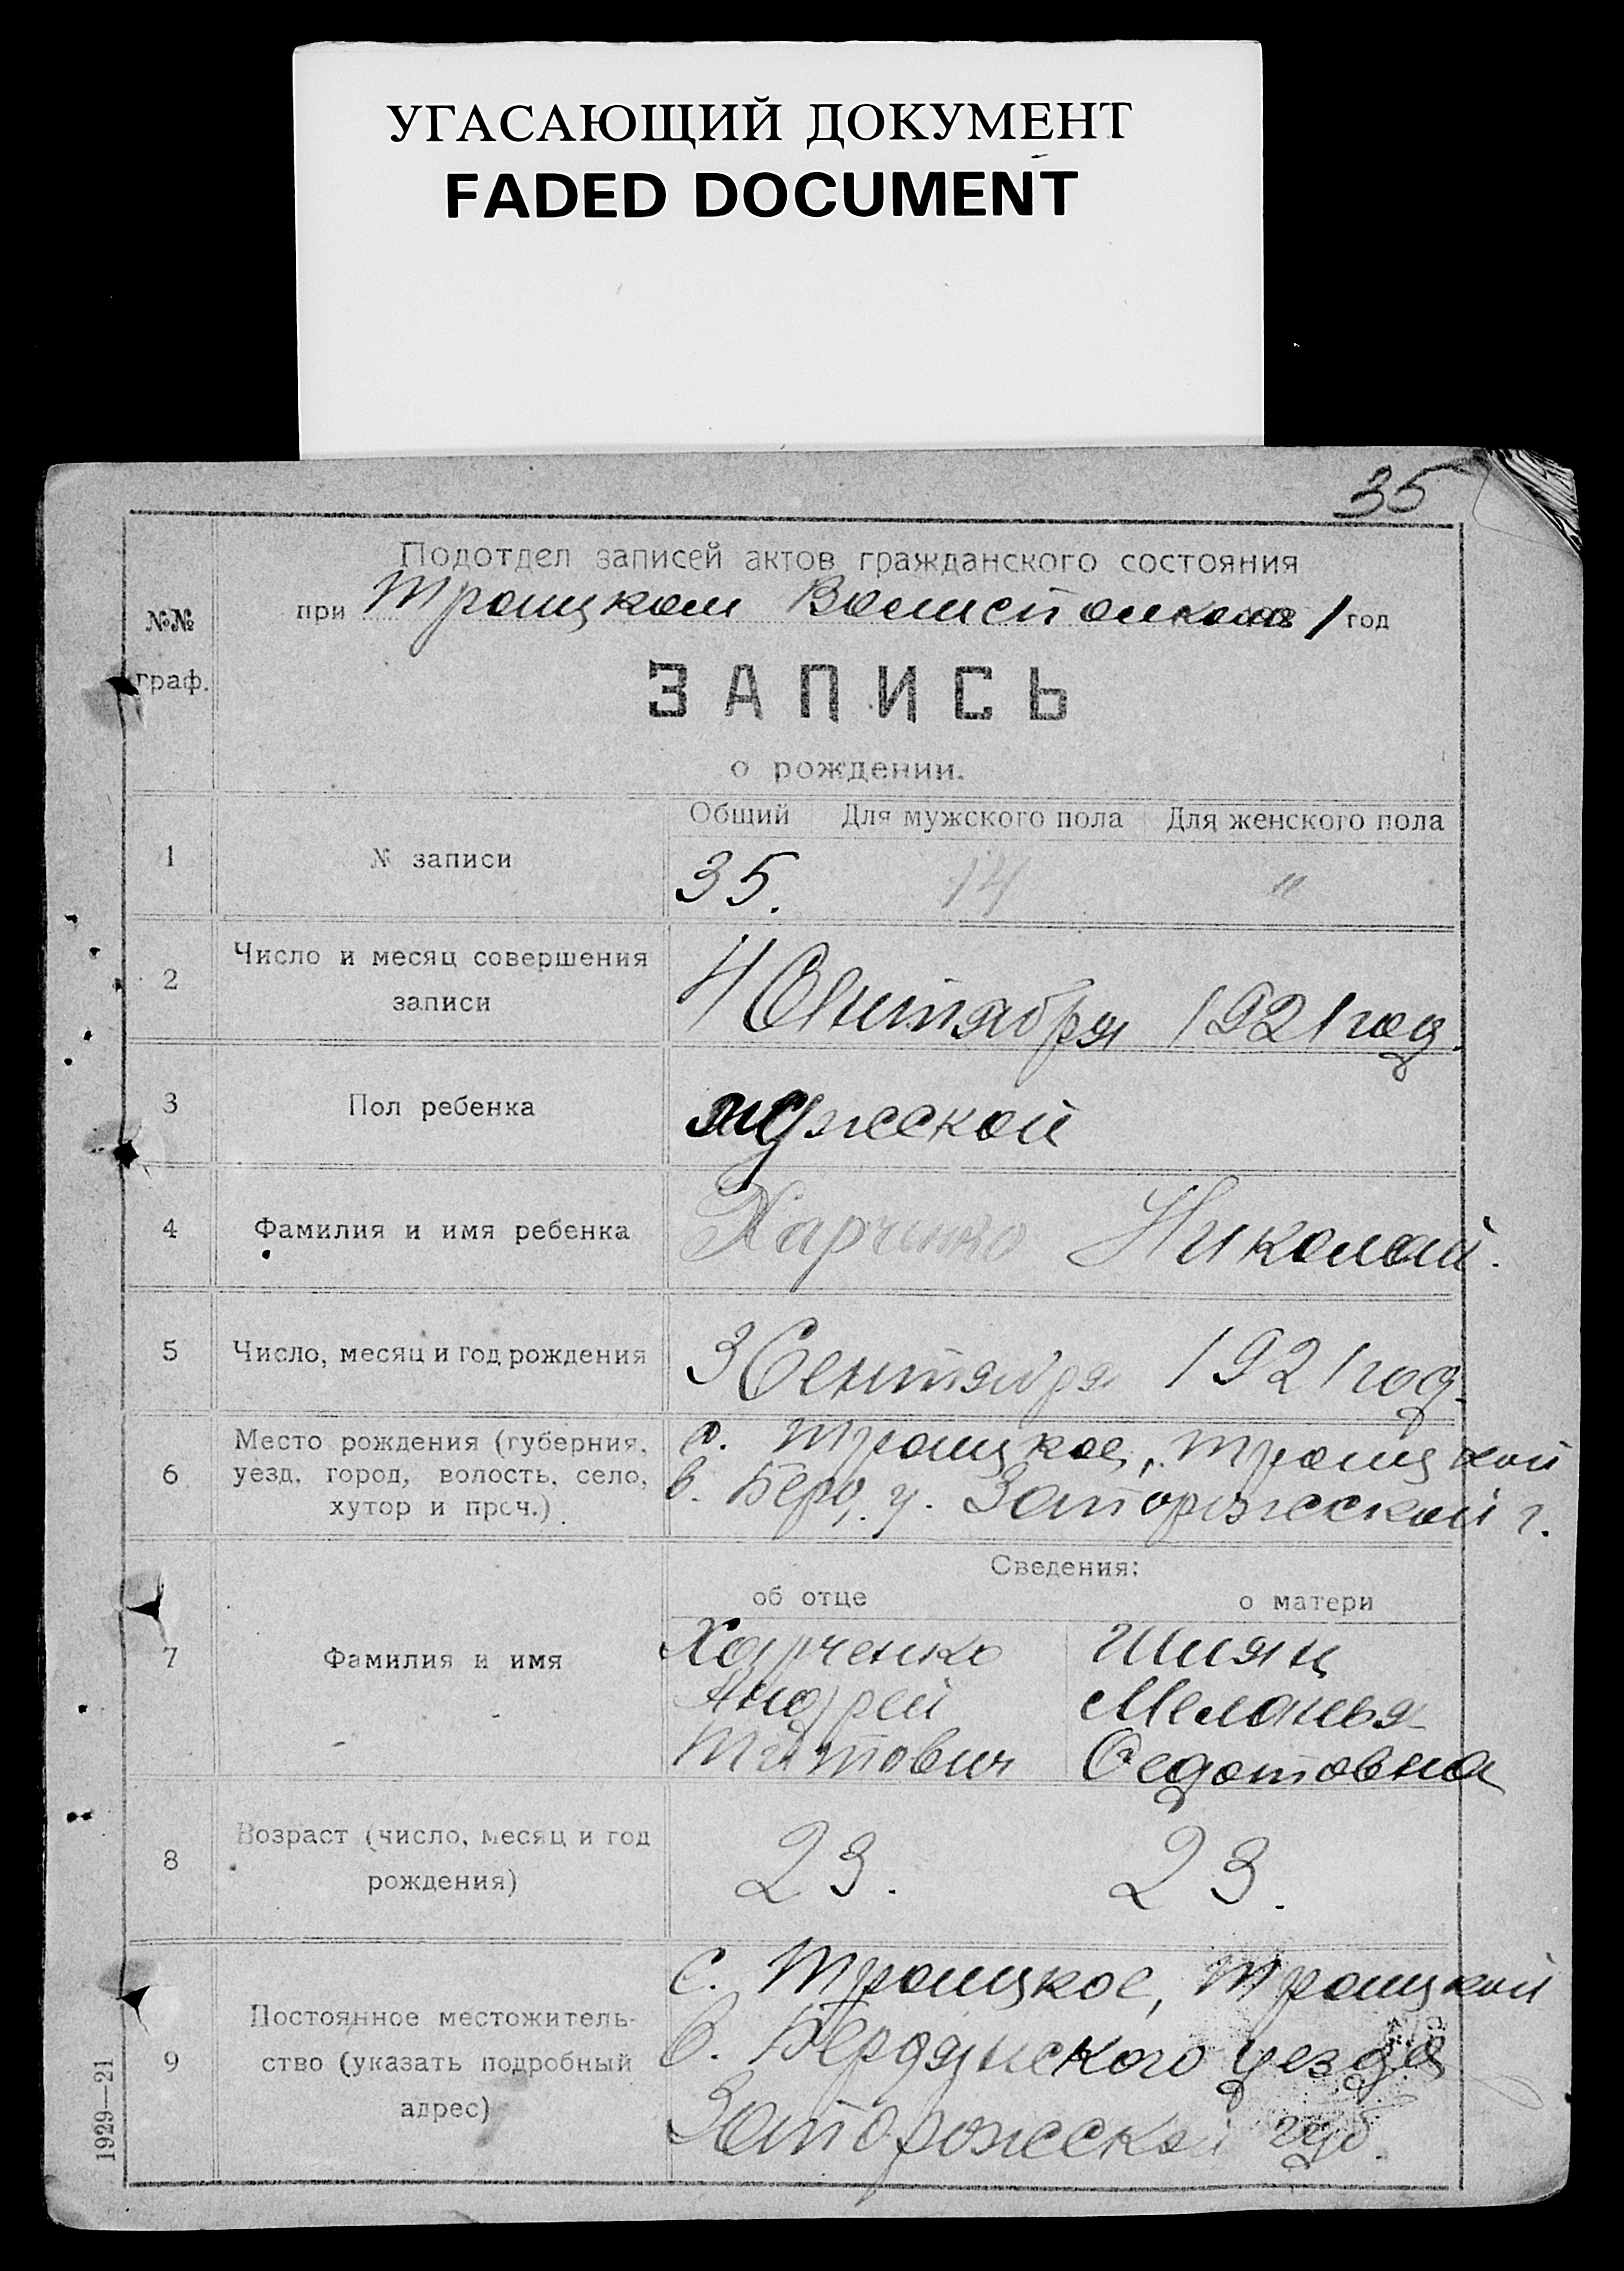 УГАСАЮЩИЙ ДОКУМЕНТ
FADED DOCUMENT
35
Подотдел записей актов гражданского состояния
при Троицком 1 год
№№ граф.
ЗАПИСЬ
о рождении.
Общий Для мужского пола Для женского пола
1 № записи 35. 14 "
2 Число и месяц совершения
записи
4 Сентября 1921 год.
3 Пол ребенка мужской
4 Фамилия и имя ребенка Харченко Николай.
5 Число, месяц и год рождения 3 Сентября 1921 год.
6 Место рождения (губерния,
уезд, город, волость, село,
хутор и проч.)
с. Троицкое, Троицкой
в. Берд. у. Запорожской г.
Сведения:
об отце о матери
7 Фамилия и имя
Харченко Шиян
Андрей Меланья
Титович Федотовна
8 Возраст (число, месяц и год
рождения)
23. 23.
9 Постоянное местожитель-
ство (указать подробный
адрес)
с. Троицкое, Троицкой
в. Бердянского уезда
Запорожской губ.
1929—21